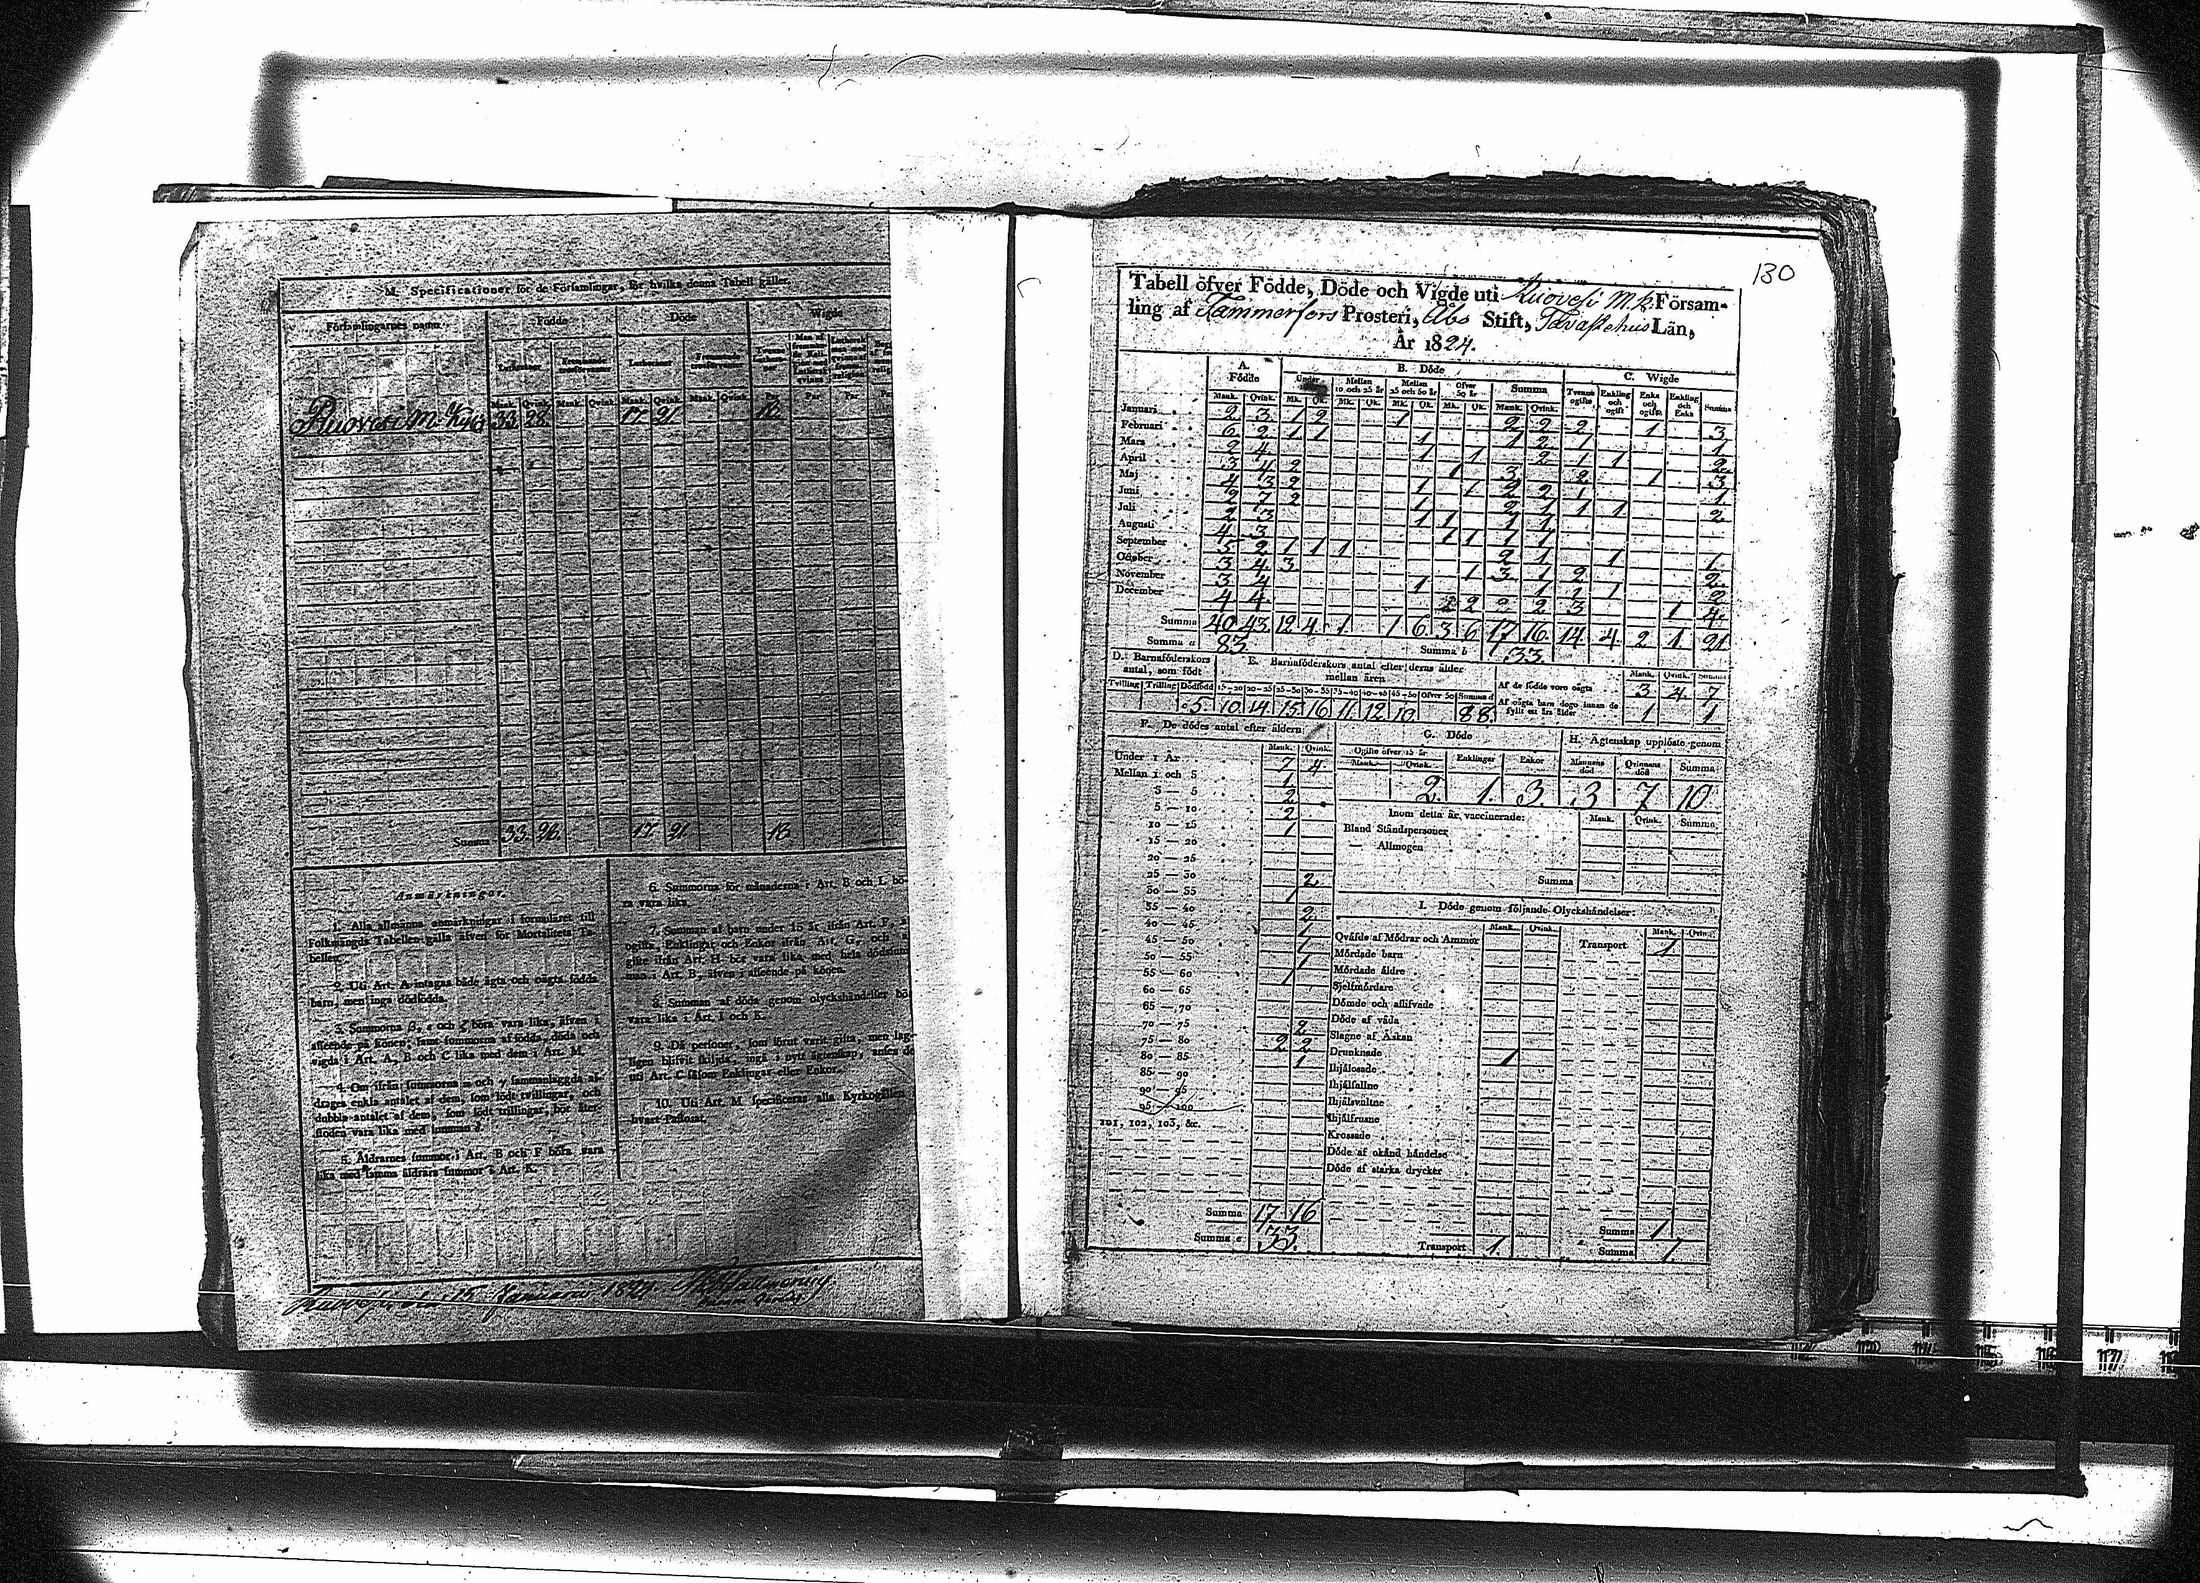 M. Specificationer för de Församlingar, för hvilka denna Tabell gäller.
Församlingarnes namn. Födde Döde Wigde
Lutheraner Lutheraner
Mank. Qvink. Mank. Qvink. Mank. Qvink. Mank. Qvink. Par Par Par
Ruovesi M. Kyrk 33. 28. 17. 21. 18.
Summa 33. 26. 17. 21. 18.
Anmärkningar.
1. Alla allmänna anmärkningar i formuläret till
Folkmängds Tabellen gälla äfven för Mortalitets Ta-
bellen.
2. Uti Art. A intagas både ägta och oägta födda
barn, men inga dödfödda.
3. Summorna β, ε och ζ böra vara lika, äfven i
afseende på könen; samt summorna af födda, döda och
vigda i Art. A, B och C lika med dem i Art. M.
4. Om ifrån summorna α och γ sammanlaggda af-
drages enkla antalet af dem, som födt tvillingar, och
dubbla antalet af dem, som födt trillingar, bör åter-
stoden vara lika med summan δ.
5. Åldrarnes summor i Art. B och F böra vara
lika med samma åldrars summor i Art. K.
6. Summorna för månaderna i Art. B och L bö-
ra vara lika.
7. Summan af barn under 15 år ifrån Art. F,
ogifta, Enklingar och Enkor ifrån Art. G, och
gifte ifrån Art. H bör vara lika med hela dödsum-
man i Art. B, äfven i afseende på könen.
8. Summan af döda genom olyckshändelser bör
vara lika i Art. I och K.
9. Då personer, som förut varit gifta, men lag-
ligen blifvit skiljda, ingå i nytt ägtenskap, anses de
uti Art. C såsom Enklingar eller Enkor.
10. Uti Art. M specificeras alla Kyrkogällen i
hvart Pastorat.
Ruovesi, den 15 Januarii
130
Tabell öfver Födde, Döde och Vigde uti Ruovesi M.k. Försam-
ling af Tammerfors Prosteri, Åbo Stift, Tavastehus Län,
År 1824.
A. Födde B. Döde C. Wigde
Under Mellan 10 och 25 år Mellan 25 och 50 år Öfver 50 år Summa Tvenne ogifte Enkling och ogift Enka och ogift Enkling och Enka Summa
Mank. Qvink. Mk. Qk. Mk. Qk. Mk. Qk. Mk. Qk. Mank. Qvink.
Januari 2 3 1 2 1 2 2 2 1 3
Februari 6 2 1 1 1 1 2 1 1
Mars 2 4 1 1 2 1 1 2
April 3 4 2 1 3 2 1 3
Maj 4 3 2 1 1 2 2 1 1
Juni 2 7 2 1 2 1 1 1 2
Juli 2 3 1 1 1 1
Augusti 4 3 1 1 1 1
September 5 2 1 1 1 2 1 1 1
October 3 4 3 1 3 1 2 2
November 3 4 1 1 1 1 2
December 4 4 2 2 2 2 3 1 4
Summa 40 43 12 4 1 1 6 3 6 17 16 14 4 2 1 21
Summa α 83. Summa b 33.
D. Barnaföderskors antal, som födt E. Barnaföderskors antal efter deras ålder mellan åren
Tvilling Trilling Dödfödd 15—20 20—25 25—30 30—35 35—40 40—45 45—50 öfver 50 Summa d
5 10 14 15 16 11 12 10 88
Mank. Qvink. Summa
Af de födde voro oägta 3 4 7
Af oägta barn dogo innan de fyllt ett års ålder 1 1
F. De dödes antal efter åldern
Mank. Qvink.
Under 1 År 7 4
Mellan 1 och 3 1
3 — 5 2
5 — 10 2
10 — 15 1
15 — 20
20 — 25
25 — 30 2
30 — 35 1
35 — 40 2
40 — 45 1
45 — 50 1
50 — 55 1
55 — 60 1
60 — 65
65 — 70
70 — 75 2
75 — 80 2 2
80 — 85 1
85 — 90
90 — 95
95 — 100
101, 102, 103, &c.
Summa 17 16
Summa c 33.
G. Döde
Ogifte öfver 15 år Enklingar Enkor
Mank. Qvink.
2. 1. 3.
H. Ägtenskap upplöste genom
Mannens död Qvinnans död Summa
3 7 10
Inom detta år vaccinerade: Mank. Qvink. Summa
Bland Ståndspersoner
— Allmogen
Summa
I. Döde genom följande Olyckshändelser:
Mank. Qvink. Mank. Qvin.
Qväfde af Mödrar och Ammor Transport 1
Mördade barn
Mördade äldre
Sjelfmördare
Dömde och aflifvade
Döde af våda
Slagne af Åskan
Drunknade 1
Ihjälosade
Ihjälfallne
Ihjälsvältne
Ihjälfrusne
Krossade
Döde af okänd händelse
Döde af starka drycker
Summa 1
Transport 1. Summa 1.